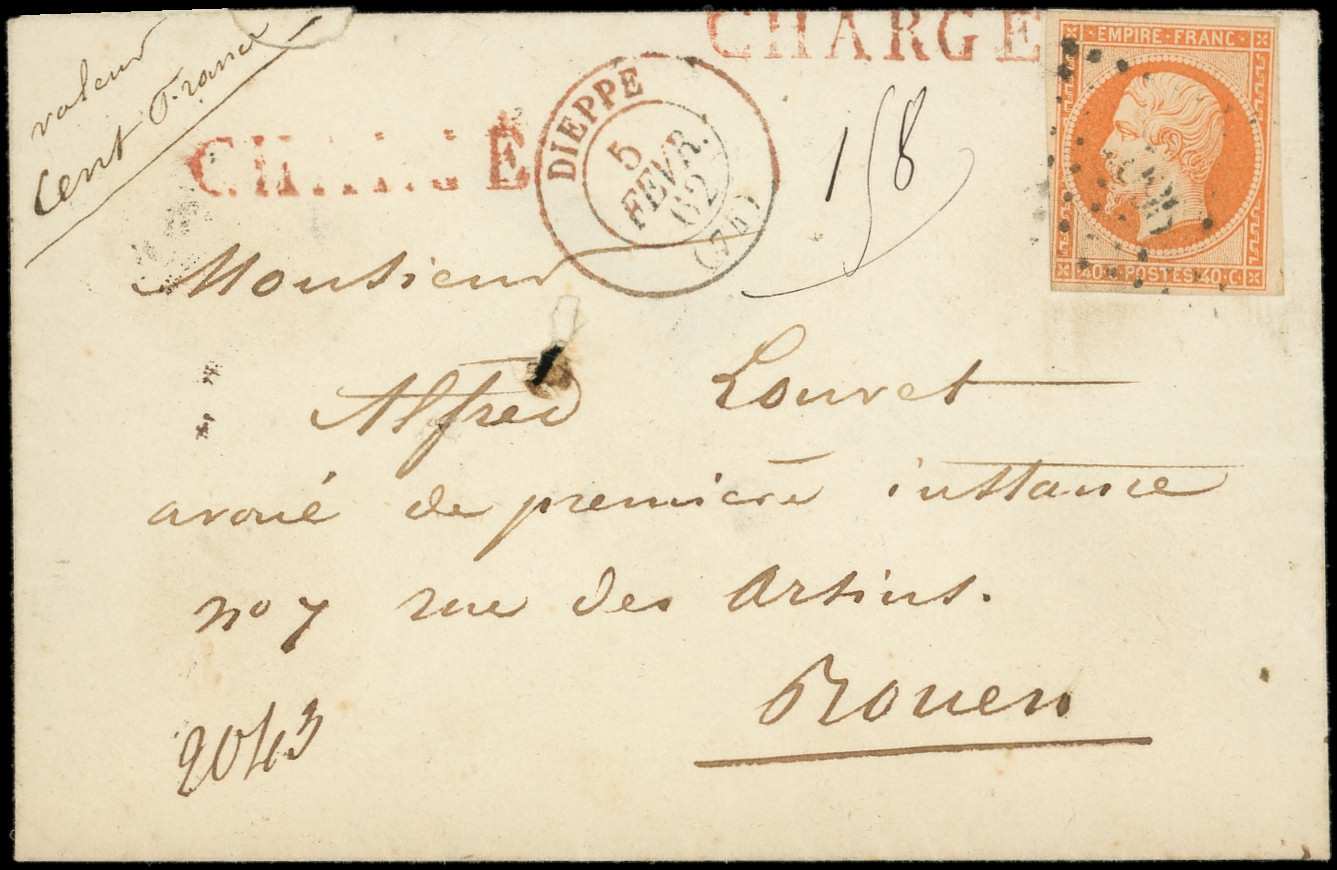 valeur
Cent Francs
CHARGE
CHARGE
DIEPPE
5
FEVR.
62
(74)
158
EMPIRE-FRANC-
40.C POSTES 40.C
Monsieur
Alfred Louvet
avoué de première instance
no 7 rue des Arsins.
Rouen
2043